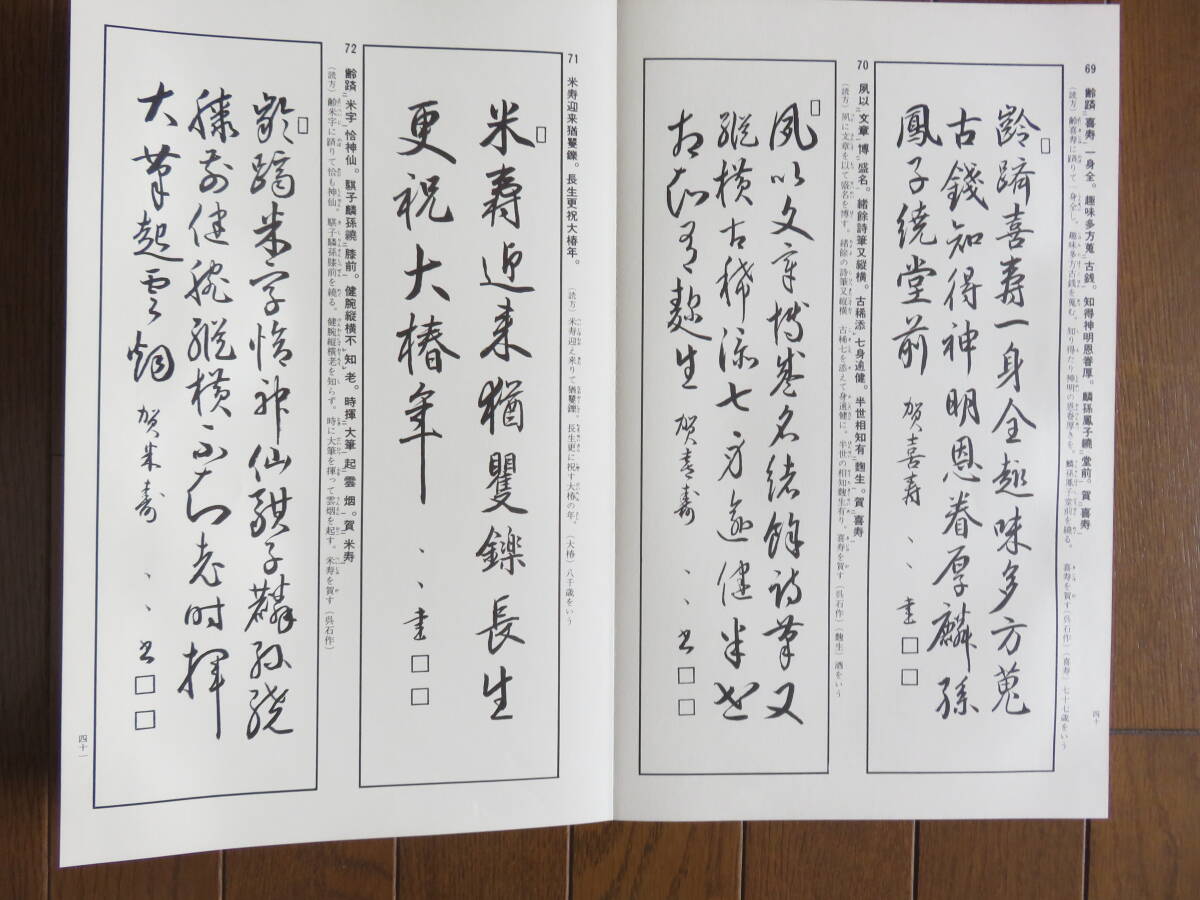 69
齢躋喜寿一身全。趣味多方蒐古銭。知得神明恩眷厚。麟孫鳳子繞堂前。賀喜寿
（読方）齢喜寿に躋りて一身全し。趣味多方古銭を蒐む。知り得たり神明の恩眷厚きを。麟孫鳳子堂前を繞る。 喜寿を賀す（呉石作）（喜寿）七十七歳をいう
齢躋喜寿一身全趣味多方蒐
古銭知得神明恩眷厚麟孫
鳳子繞堂前 賀喜寿 、、書□□
四十
70
夙以文章博盛名。緒餘詩筆又縦横。古稀添七身逾健。半世相知有麹生。賀喜寿
（読方）夙に文章を以て盛名を博す。緒餘の詩筆又縦横 古稀七を添えて身逾健に。半世の相知麹生有り。喜寿を賀す（呉石作）（麹生）酒をいう
夙以文章博盛名緒餘詩筆又
縦横古稀添七身逾健半世
相知有麹生 賀喜寿 、、書□□
71
米寿迎来猶矍鑠。長生更祝大椿年。
（読方）米寿迎え来りて猶矍鑠。長生更に祝す大椿の年。（大椿）八千歳をいう
米寿迎来猶矍鑠長生
更祝大椿年 、、書□□
72
齢躋米字恰神仙。騏子麟孫繞膝前。健腕縦横不知老。時揮大筆起雲烟。賀米寿
（読方）齢米字に躋りて恰も神仙。騏子麟孫膝前を繞る。健腕縦横老を知らず。時に大筆を揮って雲烟を起す。米寿を賀す（呉石作）
齢躋米字恰神仙騏子麟孫繞
膝前健腕縦横不知老時揮
大筆起雲烟 賀米寿 、、書□□
四十一